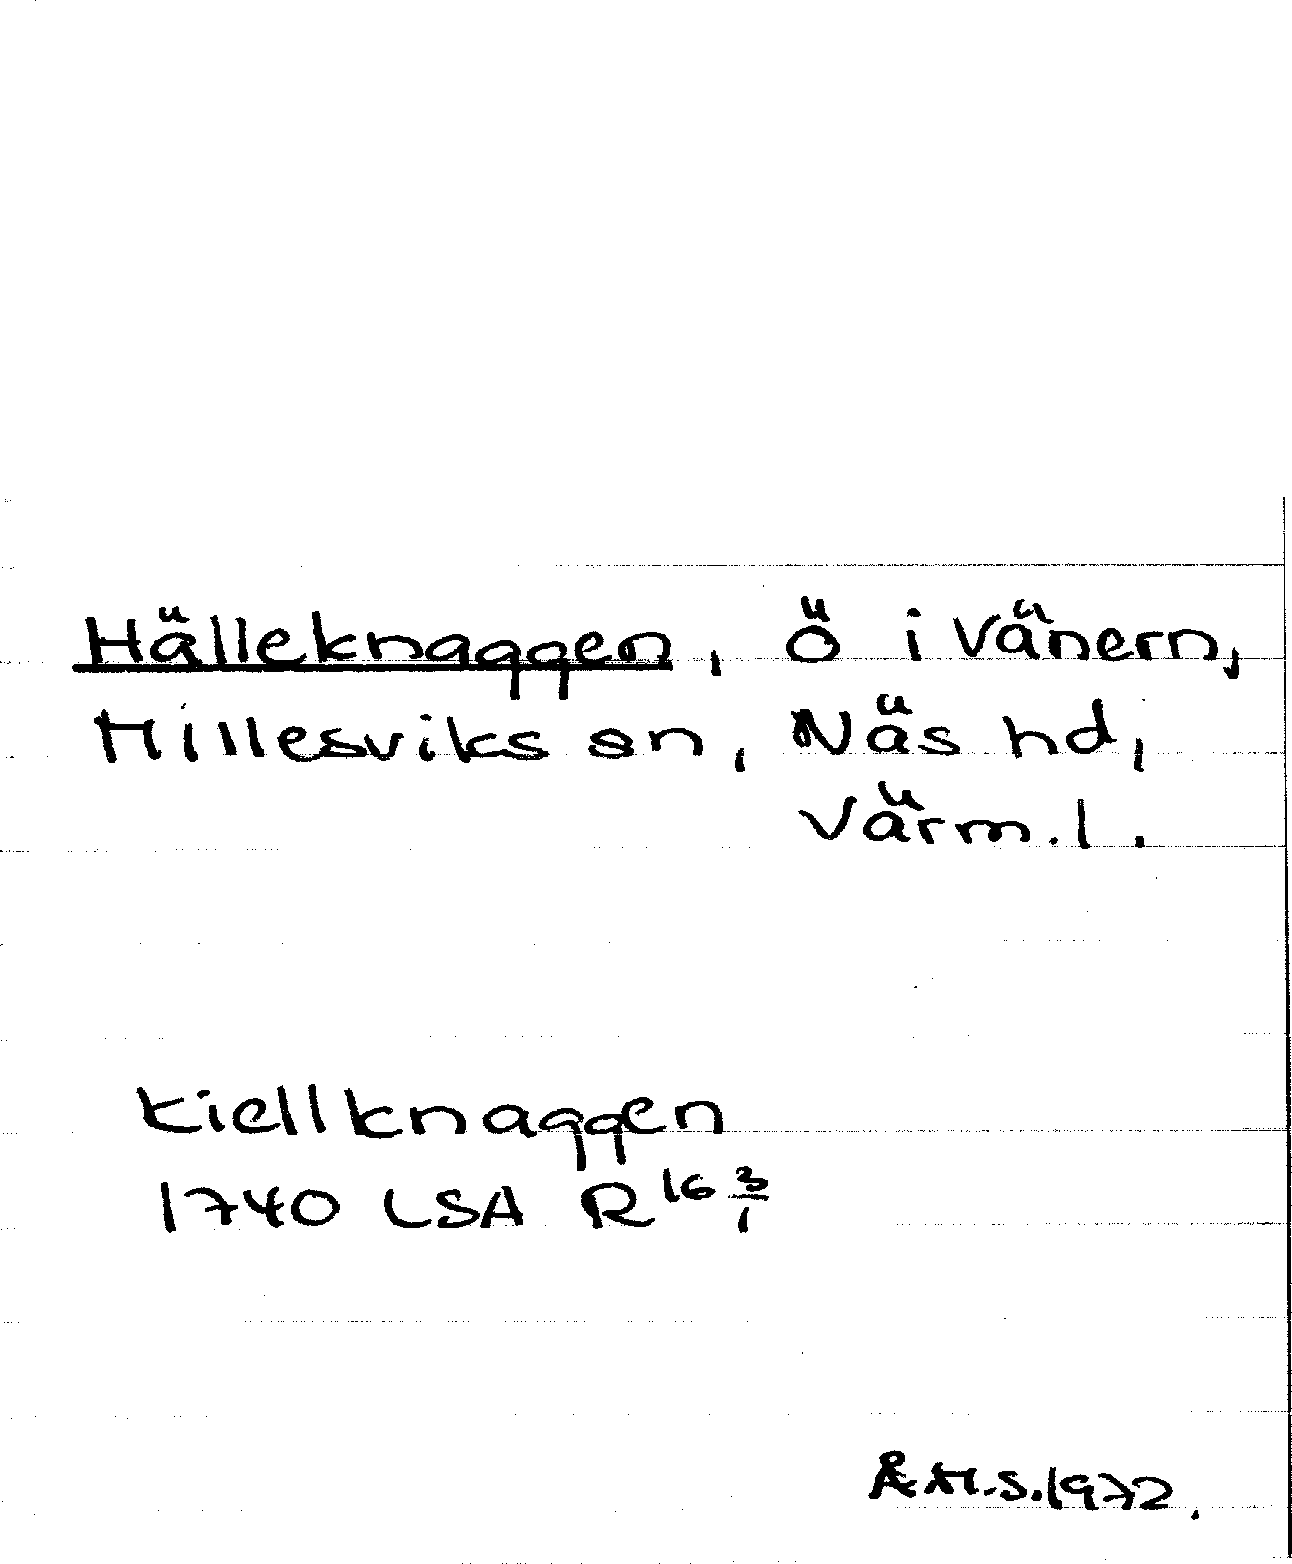 Hälleknaggen, ö i Vänern,
Hillesviks sn, Näs hd,
Värm. l.
Kiellknaggen
1740 LSA R16 3/1
Å H.S. 1972.